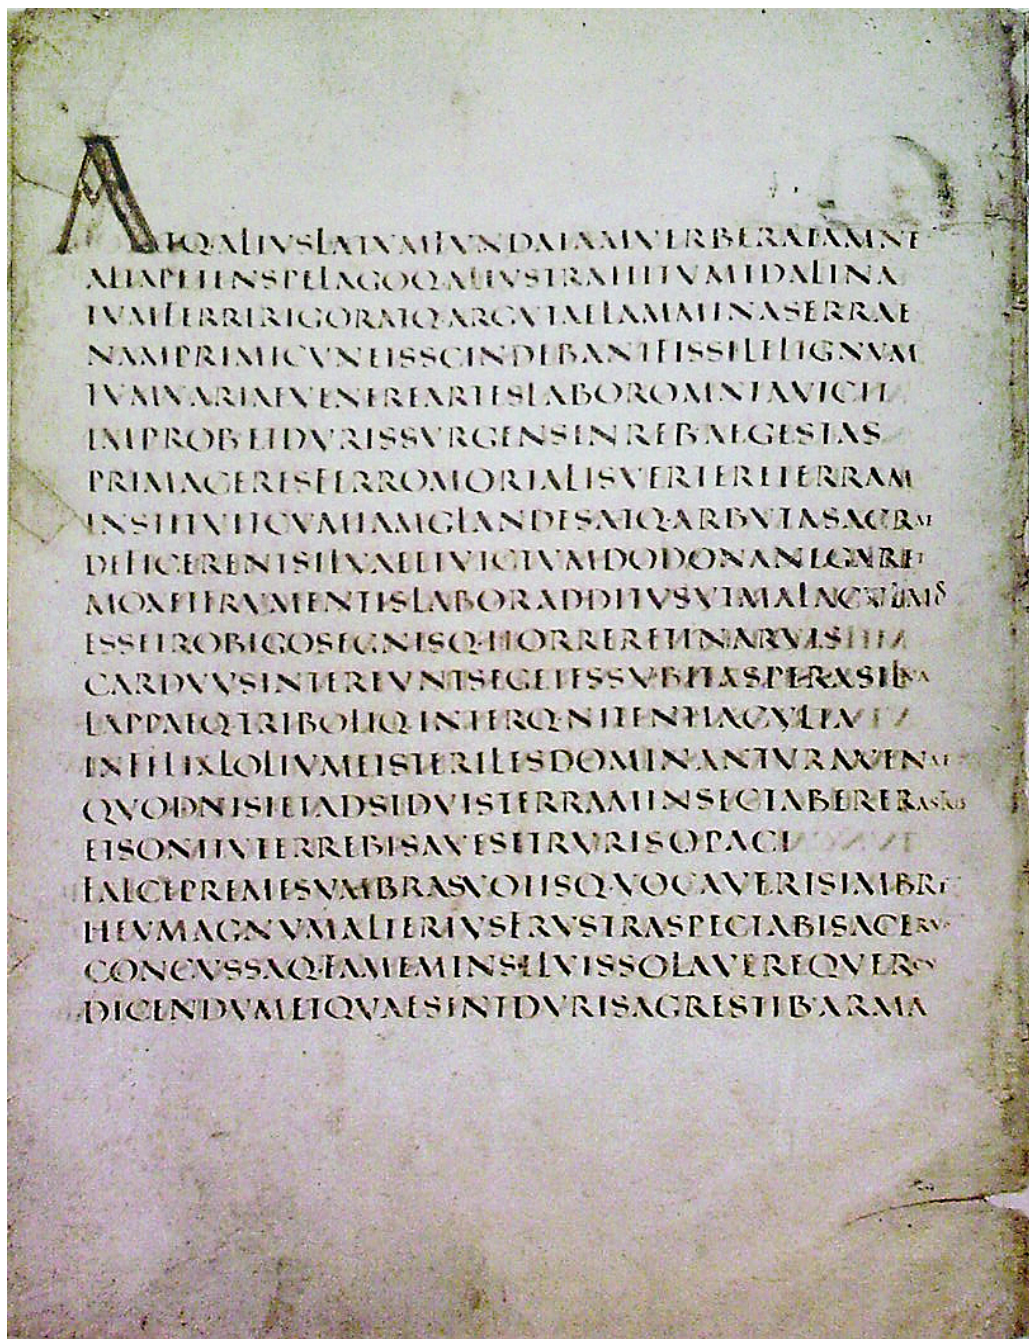 ATQ·ALIVSLATVMFVNDAIAMVERBERATAMNE
ALTAPETENSPELAGOQ·ALIVSTRAHITVMIDALINA
TVMFERRIRIGORATQ·ARGVTAELAMMINASERRAE
NAMPRIMICVNEISSCINDEBANTFISSILELIGNVM
TVMVARIAEVENEREARTESLABOROMNIAVICIT
IMPROBETDVRISSVRGENSINREBAEGESTAS
PRIMACERESFERROMORTALISVERTERETERRAM
INSTITVITCVMIAMGLANDESATQ·ARBVTASACRAE
DEFICERENTSILVAEETVICTVMDODONANEGARET
MOXETFRVMENTISLABORADDITVSVTMALACVLMOS
ESSETROBIGOSEGNISQ·HORRERETINARVIS
CARDVVSINTEREVNTSEGETESSVBITASPERASILVA
LAPPAEQ·TRIBOLIQ·INTERQ·NITENTIACVLTA
INFELIXLOLIVMETSTERILESDOMINANTVRAVENAE
QVODNISIETADSIDVISTERRAMINSECTABERERASTRIS
ETSONITVTERREBISAVESETRVRISOPACI
FALCEPREMESVMBRASVOTISQ·VOCAVERISIMBRE
HEVMAGNVMALTERIVSFRVSTRASPECTABISACERV
CONCVSSAQ·FAMEMINSILVISSOLAVEREQVERCV
DICENDVMETQVAESINTDVRISAGRESTIB·ARMA